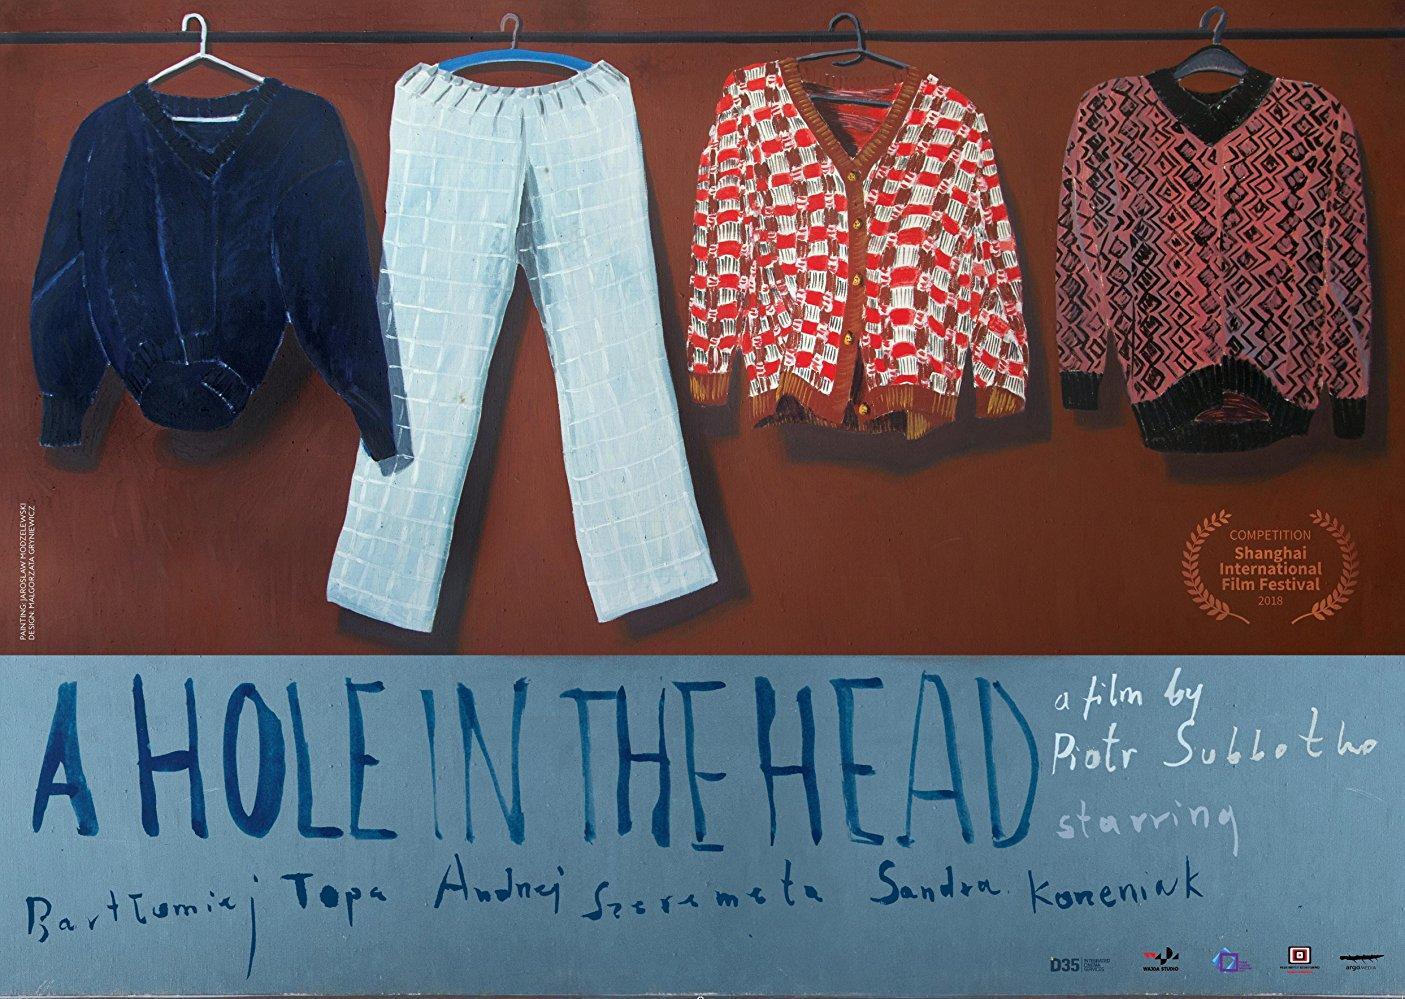 PAINTING: JAROSŁAW MODZELEWSKI
DESIGN: MAŁGORZATA GRYNIEWICZ
COMPETITION
Shanghai
International
Film Festival
2018
A HOLE IN THE HEAD
a film by
Piotr Subbotko
starring
Bartłomiej Topa Andrzej Szeremeta Sandra Korzeniak
D35 INTEGRATED CINEMA SERVICES
WAJDA STUDIO
argomedia